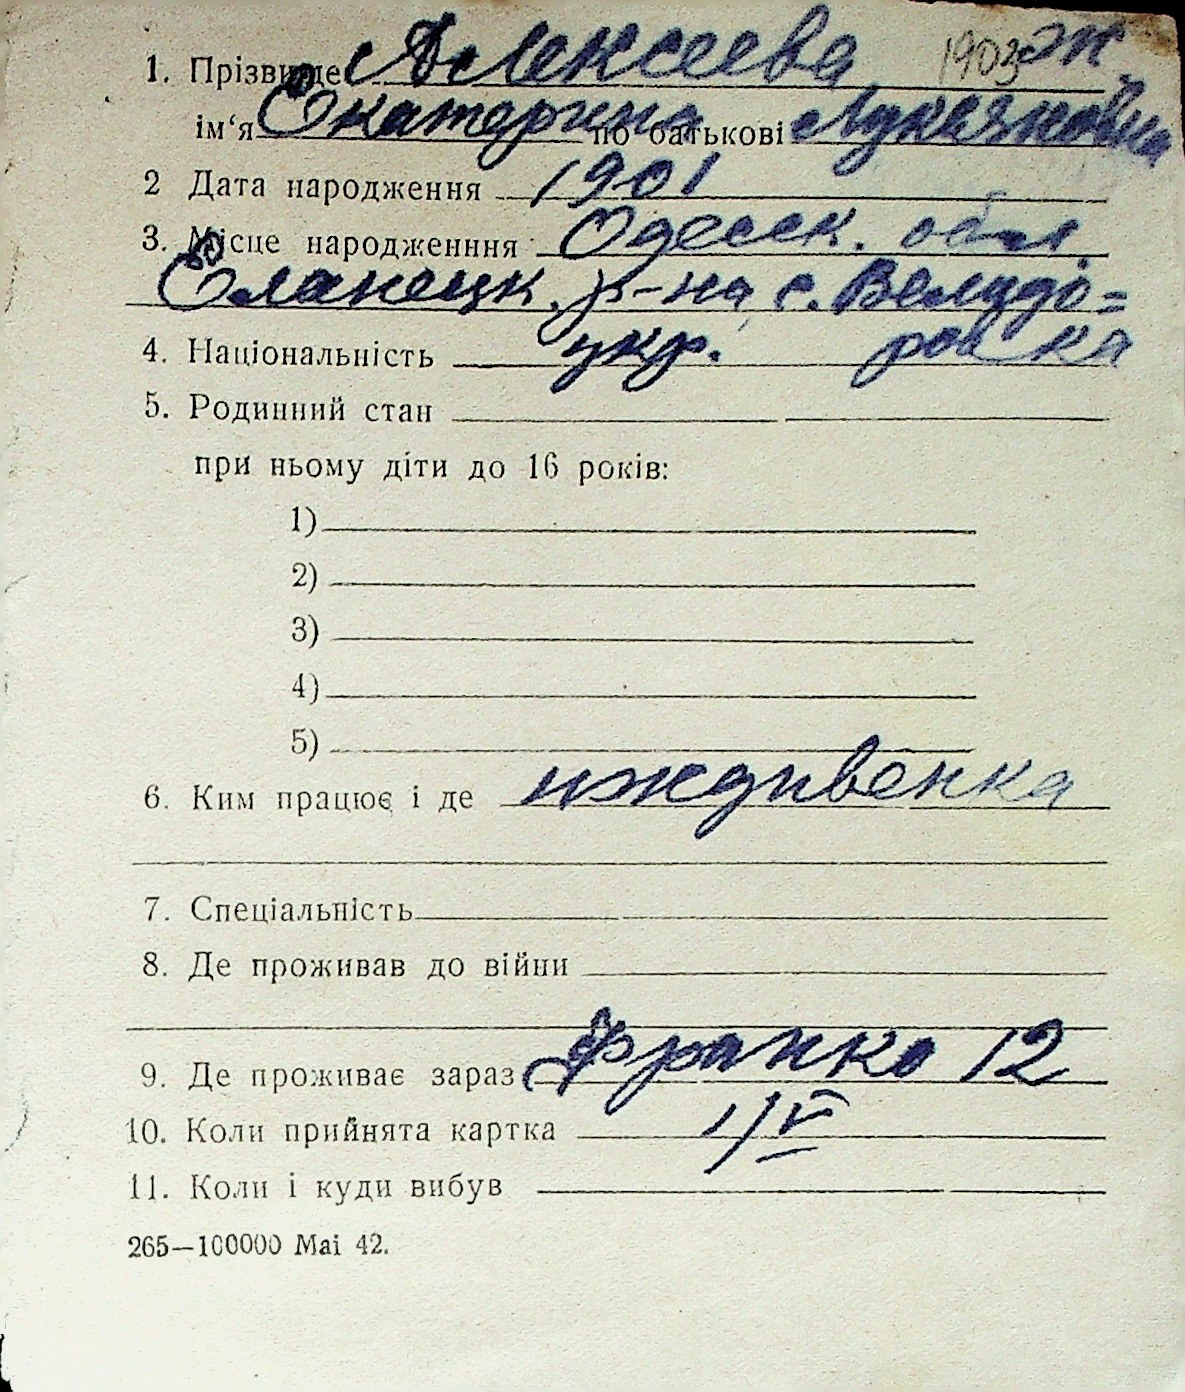 1. Прізвище Алексеева 1903 ж.
ім‘я Екатерина по батькові Лукьяновна
2 Дата народження 1901
3. Місце народженння Одесск. обл.
Еланецк. р-на с.
4. Національність укр.
5. Родинний стан
при ньому діти до 16 років:
1)
2)
3)
4)
5)
6. Ким працює і де иждивенка
7. Спеціальність
8. Де проживав до війни
9. Де проживає зараз Франко 12
10. Коли прийнята картка 1/V
11. Коли і куди вибув
265—100000 Mai 42.